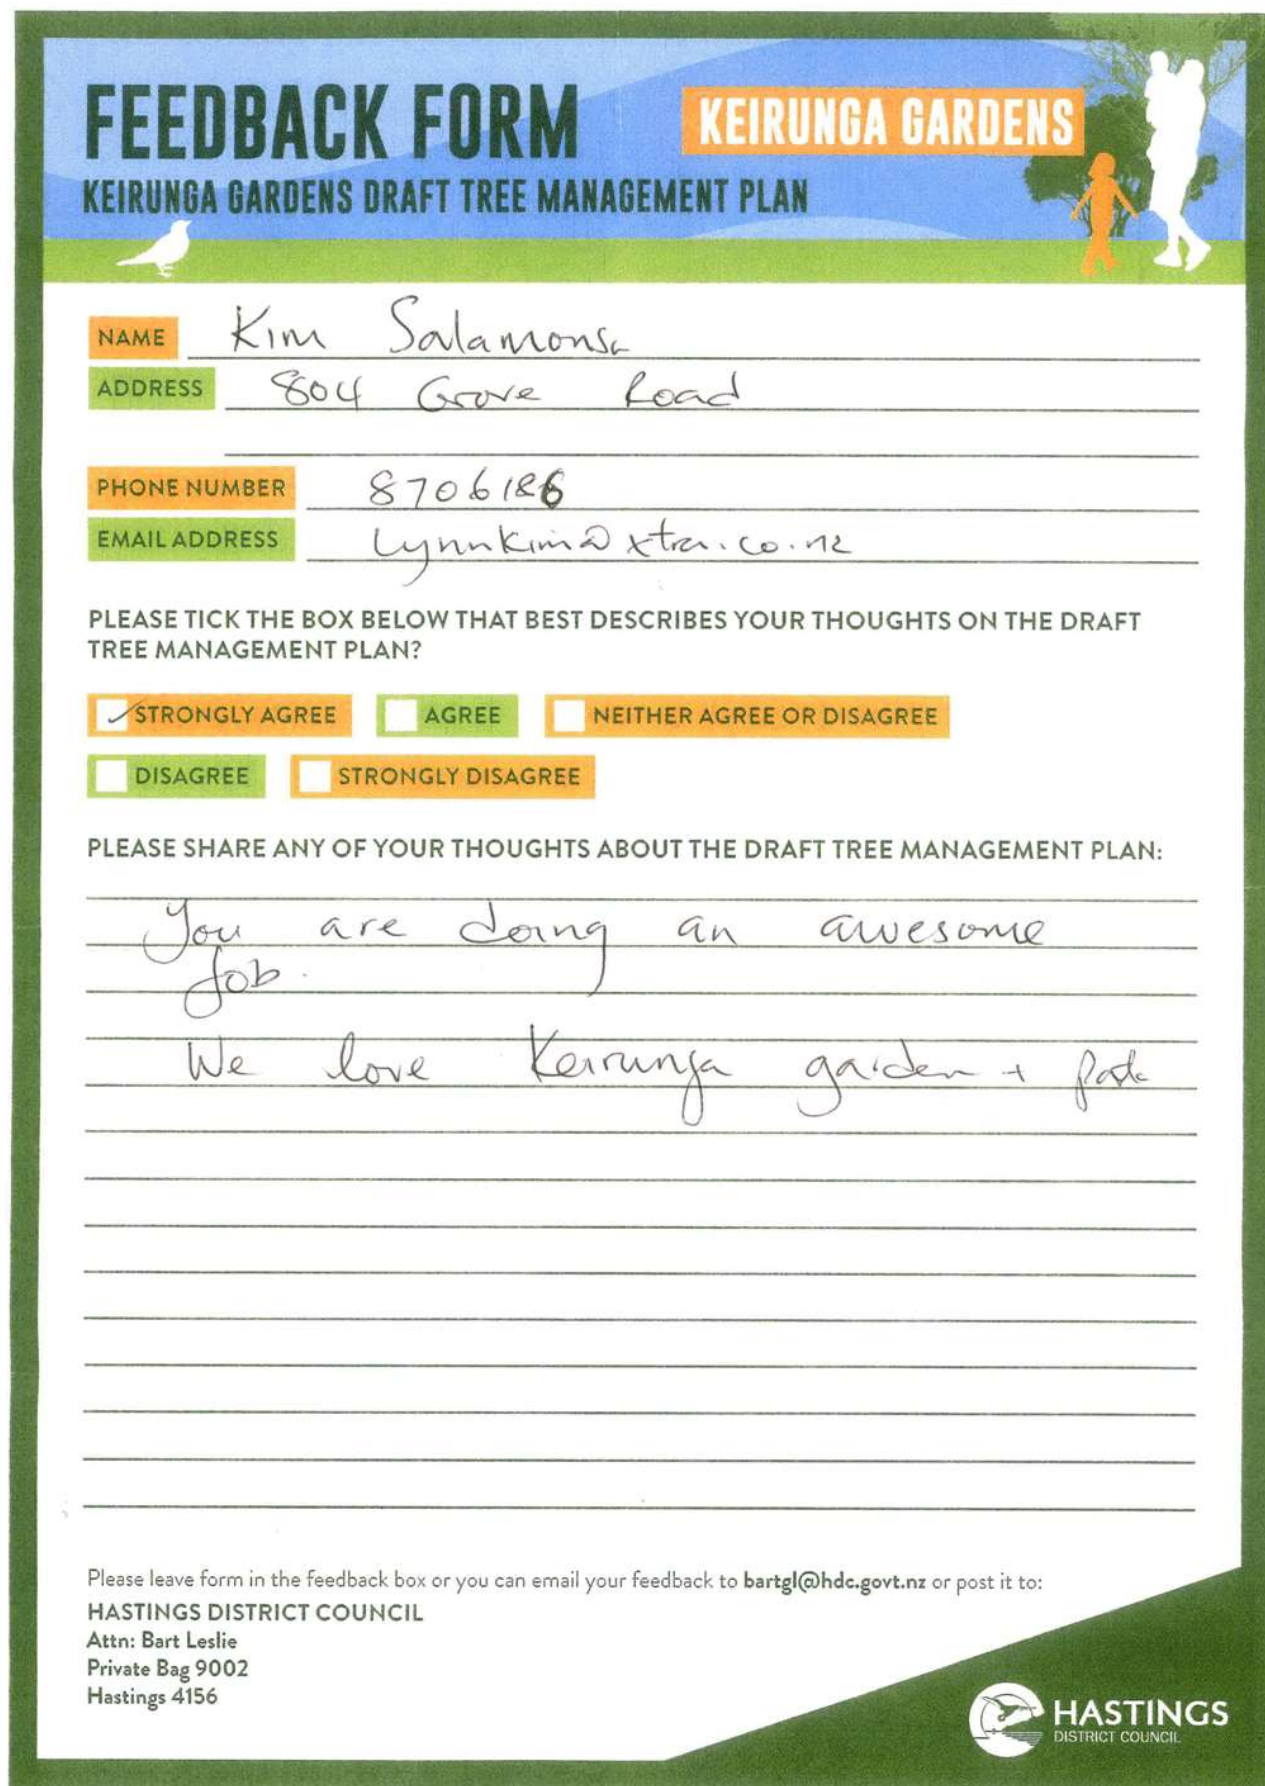 FEEDBACK FORM
KEIRUNGA GARDENS
KEIRUNGA GARDENS DRAFT TREE MANAGEMENT PLAN
NAME Kim
ADDRESS 804 Grove Road
PHONE NUMBER 8706186
EMAIL ADDRESS Lynnkim@xtra.co.nz
PLEASE TICK THE BOX BELOW THAT BEST DESCRIBES YOUR THOUGHTS ON THE DRAFT
TREE MANAGEMENT PLAN?
STRONGLY AGREE AGREE NEITHER AGREE OR DISAGREE
DISAGREE STRONGLY DISAGREE
PLEASE SHARE ANY OF YOUR THOUGHTS ABOUT THE DRAFT TREE MANAGEMENT PLAN:
You are doing an awesome
Job.
We love Keirunga garden + Park
Please leave form in the feedback box or you can email your feedback to bartgl@hdc.govt.nz or post it to:
HASTINGS DISTRICT COUNCIL
Attn: Bart Leslie
Private Bag 9002
Hastings 4156
HASTINGS
DISTRICT COUNCIL